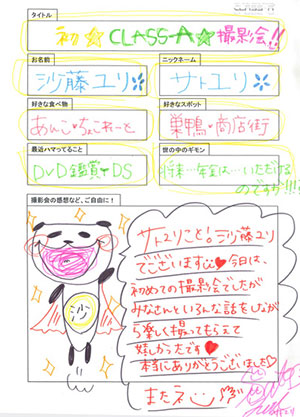 タイトル
初☆CLASS-A☆撮影会!!
お名前
沙藤ユリ
ニックネーム
サトユリ
好きな食べ物
あんこ・ちょこれーと
好きなスポット
巣鴨・商店街
最近ハマってること
DVD鑑賞♥DS
世の中のギモン
将来…年金は…いただける
のですか!!!
撮影会の感想など、ご自由に!
沙
サトユリこと。沙藤ユリ
でございます♥今日は、
初めての撮影会でしたが
みなさんといろんな話をしなが
ら楽しく撮ってもらえて
嬉しかったです♥
本当にありがとうございました♡
またネ